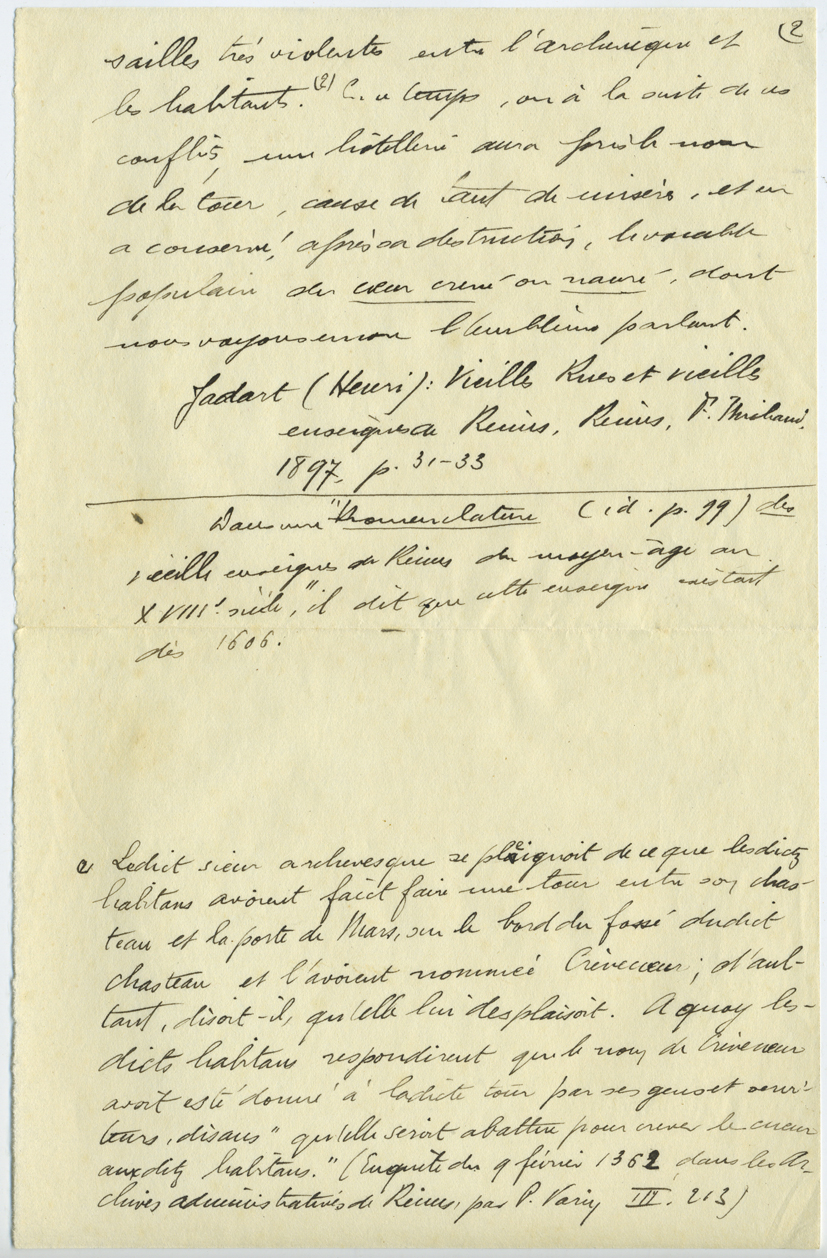 (2
sailles très violentes entre l'archevêque et
les habitants.(2) En ce temps, ou à la suite de ces
conflits, une hôtellerie aura pris le nom
de la tour, cause de tant de misères, et en
a conservé, après sa destruction, le vocable
populaire du cœur crevé ou navré, dont
nous voyons encore l'emblème parlant.
Jadart (Henri): Vieilles Rues et vieilles
enseignes de Reims, Reims, F. Michaud,
1897, p. 31-33
Dans une "Nomenclature (id. p. 99) des
vieille enseignes de Reims du moyen-âge au
XVIIIe siècle", il dit que cette enseigne existait
dès 1606.
2 Ledict sieur archevesque se plaignoit de ce que lesdictz
habitans avoient faict faire une tour entre son chas-
teau et la porte de Mars, sur le bord du fossé dudict
chasteau et l'avoient nommée Crèvecueur; d'aul-
tant, disoit-il, qu'elle lui desplaisoit. A quoy les-
dicts habitans respondirent que le nom de Crèvecueur
avoit esté donné à ladicte tour par ses gens et servi-
teurs, disans "qu'elle seroit abattue pour crever le cueur
auxditz habitans." (Enquête du 9 février 1362, dans les Ar-
chives administratives de Reims, par P. Varin III. 213)